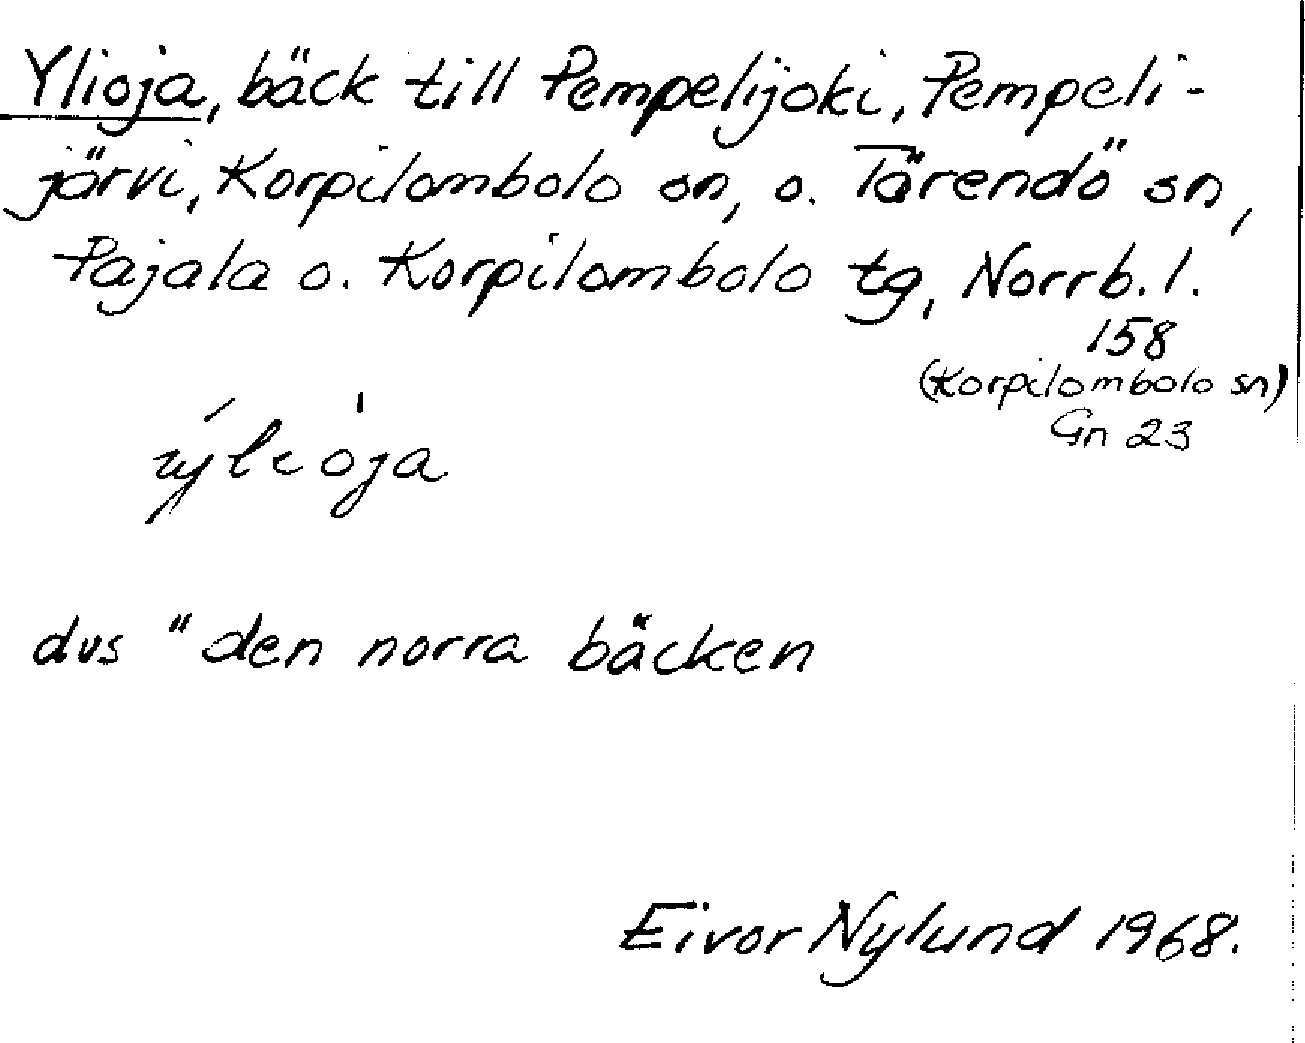 Ylioja, bäck till Pempelijoki, Pempeli-
järvi, Korpilombolo sn, o. Tärendö sn,
Pajala o. Korpilombolo tg, Norrb. l.
158
(Korpilombolo sn)
Gn 23
ýliója
dvs "den norra bäcken
Eivor Nylund 1968.